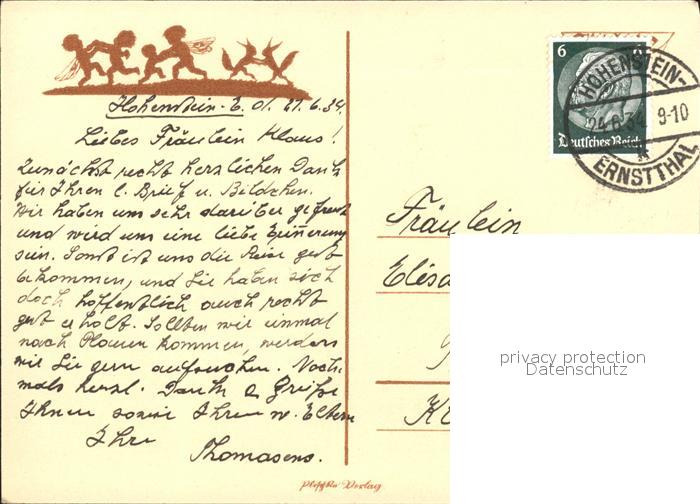 Hohenstein-E. 01. 21.6.34.
Liebes Fräulein Klaus!
Zunächst recht herzlichen Dank
für Ihren l. Brief u. Bildchen.
Wir haben uns sehr darüber gefreut
und wird uns eine liebe Erinnerung
sein. Sonst ist uns die Reise gut
bekommen, und Sie haben sich
doch hoffentlich auch recht
gut erholt. Sollten wir einmal
nach Plauen kommen, werden
wir Sie gern aufsuchen. Noch-
mals herzl. Dank & Grüße
Ihnen sowie Ihren w. Eltern
Ihre
Thomasens.
6 6
Deutsches Reich
HOHENSTEIN-
24.6.34 9-10
ERNSTTHAL
Fräulein
Elisa
privacy protection
Datenschutz
Verlag